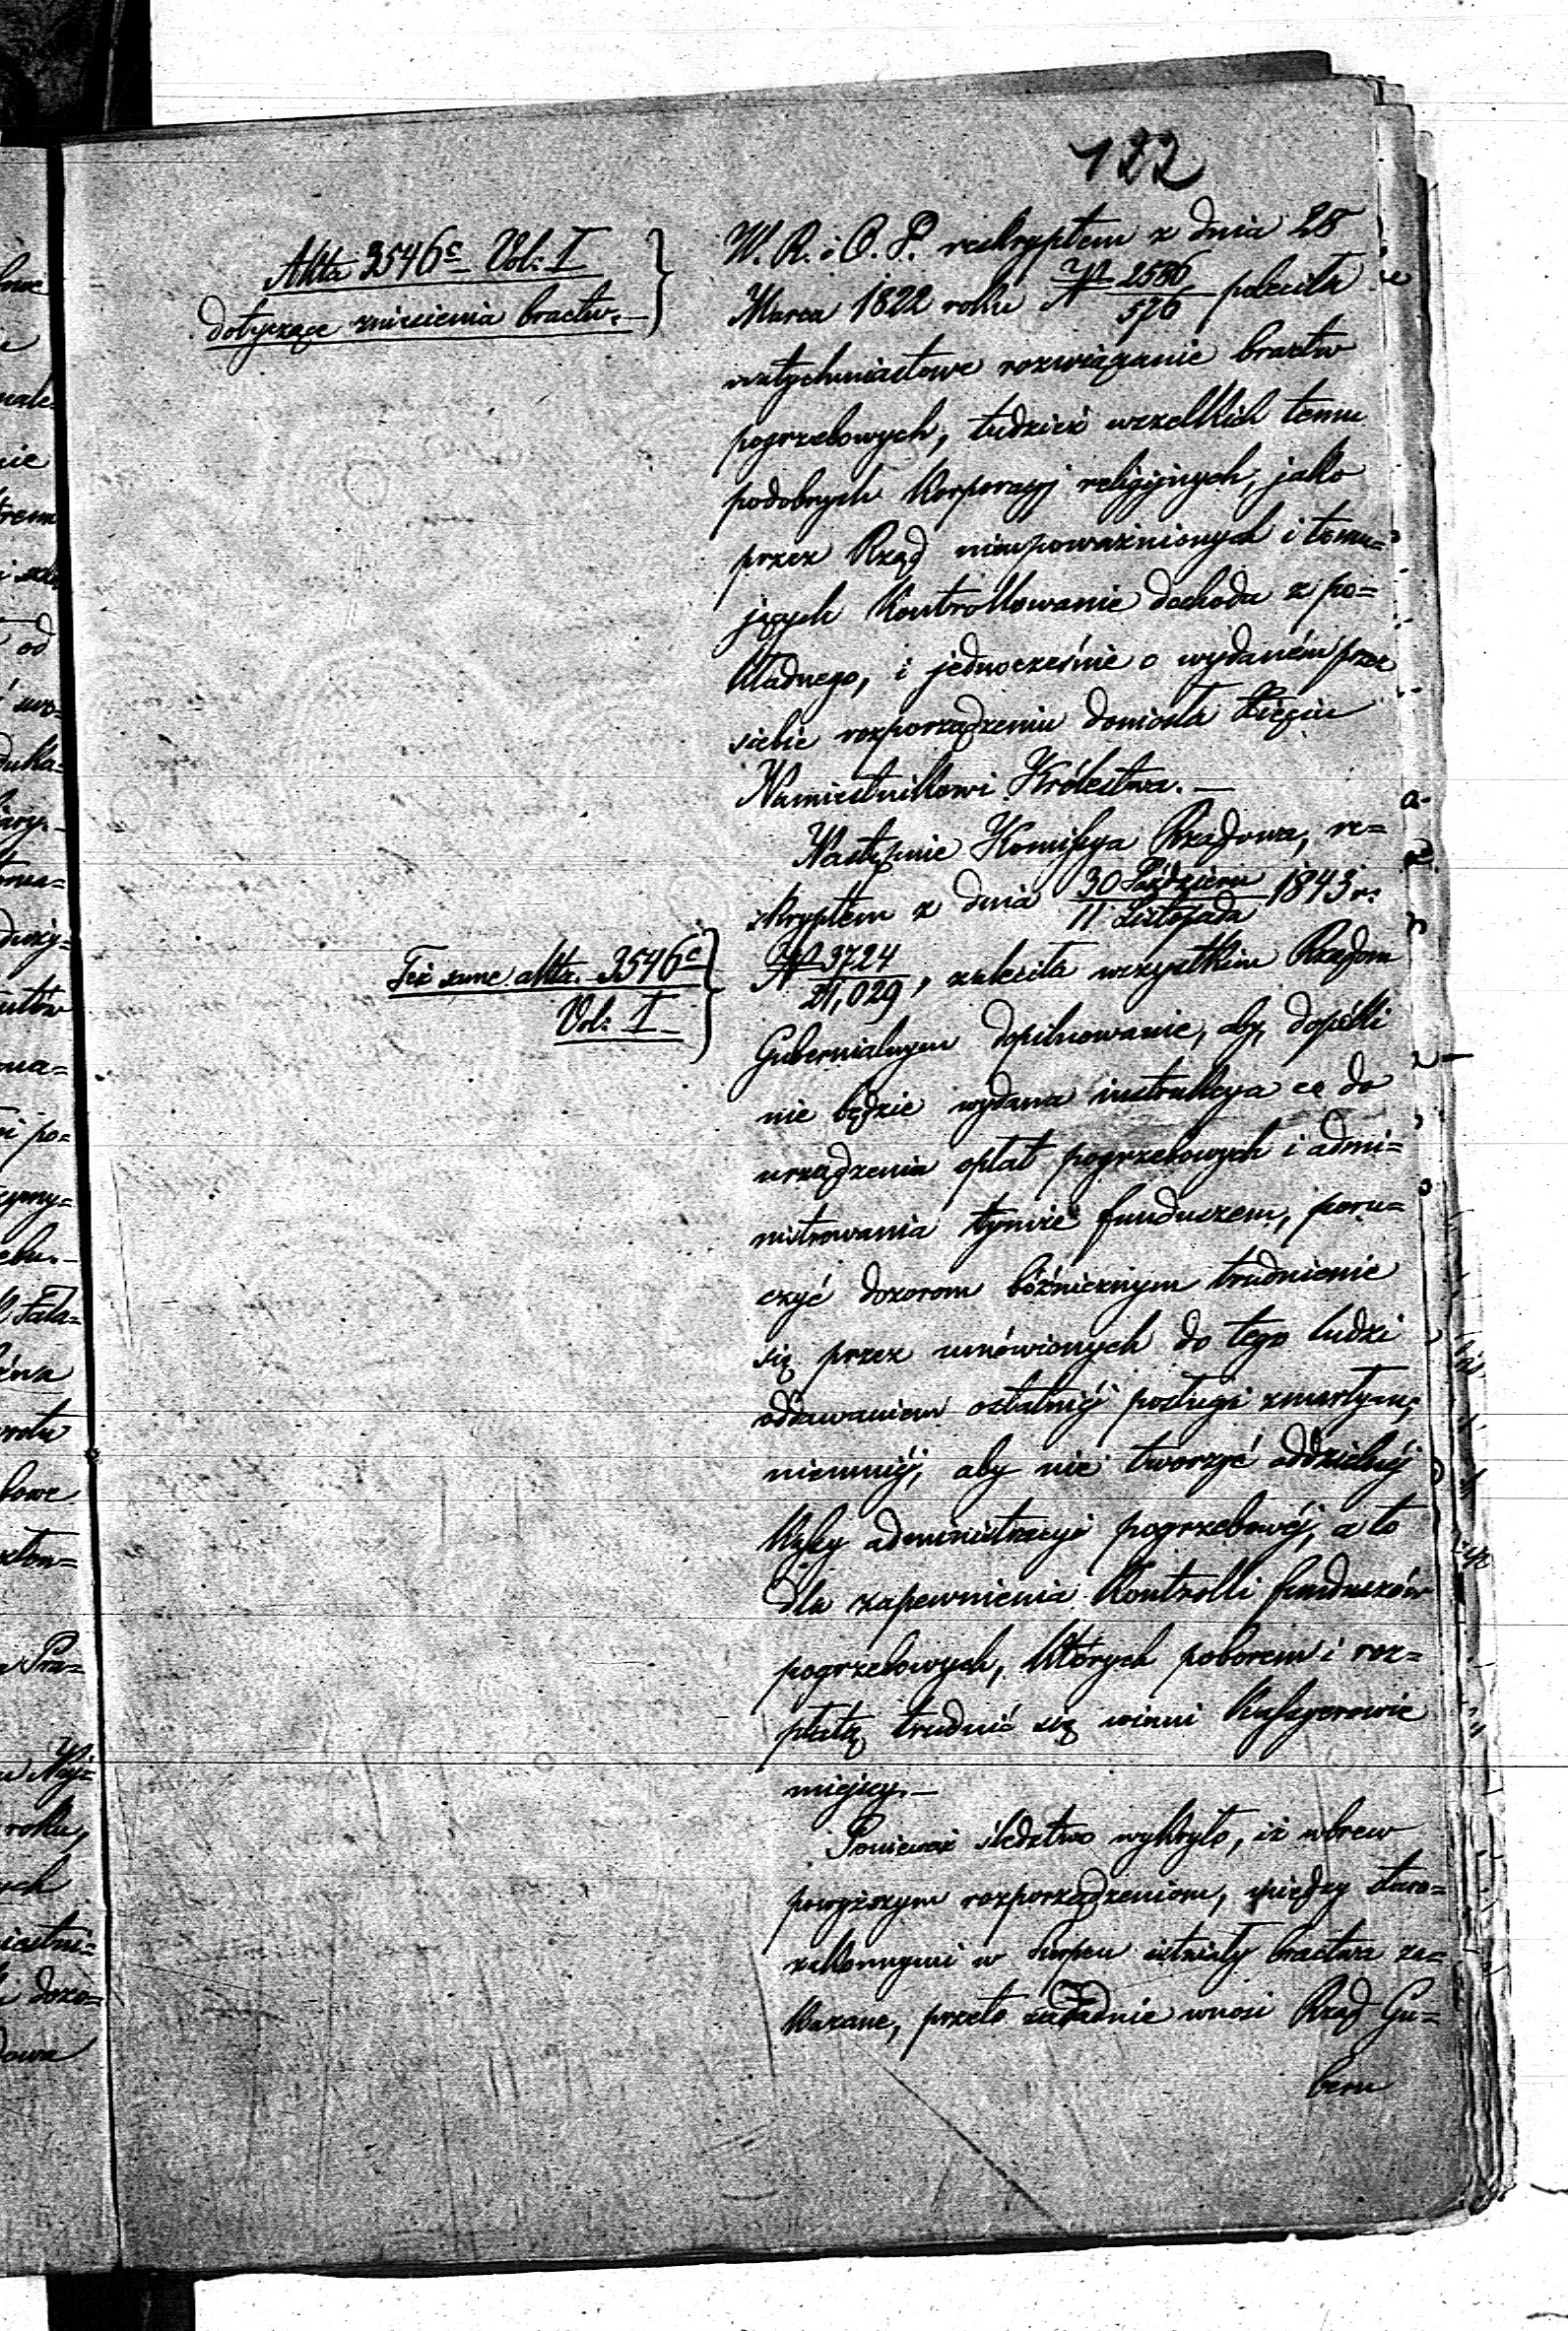 122
Akta 3546c Vol: I
dotyczące zniesienia bractw.—
W. R. i O. P. reskryptem z dnia 28
Marca 1822 roku № 2586/576 poleciła
natychmiastowe rozwiązanie bractw
pogrzebowych, tudzież wszelkich temu
podobnych Korporacyj religijnych, jako
przez Rząd nieupoważnionych i tamu=
jących Kontrollowanie dochodu z po=
kładnego, i jednocześnie o wydaném przez
siebie rozporządzeniu doniosła Xięciu
Namiestnikowi Królestwa.—
Następnie Kommissya Rządowa, re=
skryptem z dnia 30 Październ/11 Listopada 1843 r.
Też same akta. 3546c
Vol: I
№ 3724/21,029, zaleciła wszystkim Rządom
Gubernialnym dopilnowanie, aby, dopókì
nie będzie wydana instrukcya co do
urządzenia opłat pogrzebowych i admi=
nistrowania tymże funduszem, poru=
czyć dozorom bóżniczym trudnienie
się przez umówionych do tego ludzi
oddawaniem ostatniéj posługi zmarłym,
niemniéj, aby nie tworzyć oddzielnéj
Kassy administracyi pogrzebowéj, a to
dla zapewnienia Kontrolli funduszów
pogrzebowych, których poborem i roz=
płatą trudnić się winni Kassyerowie
miejscy.—
Ponieważ śledztwo wykryło, iż wbrew
powyższym rozporządzeniom, między staro=
zakonnymi w Sierpcu istniały bractwa za=
kazane, przeto zasadnie wnosi Rząd Gu=
bern